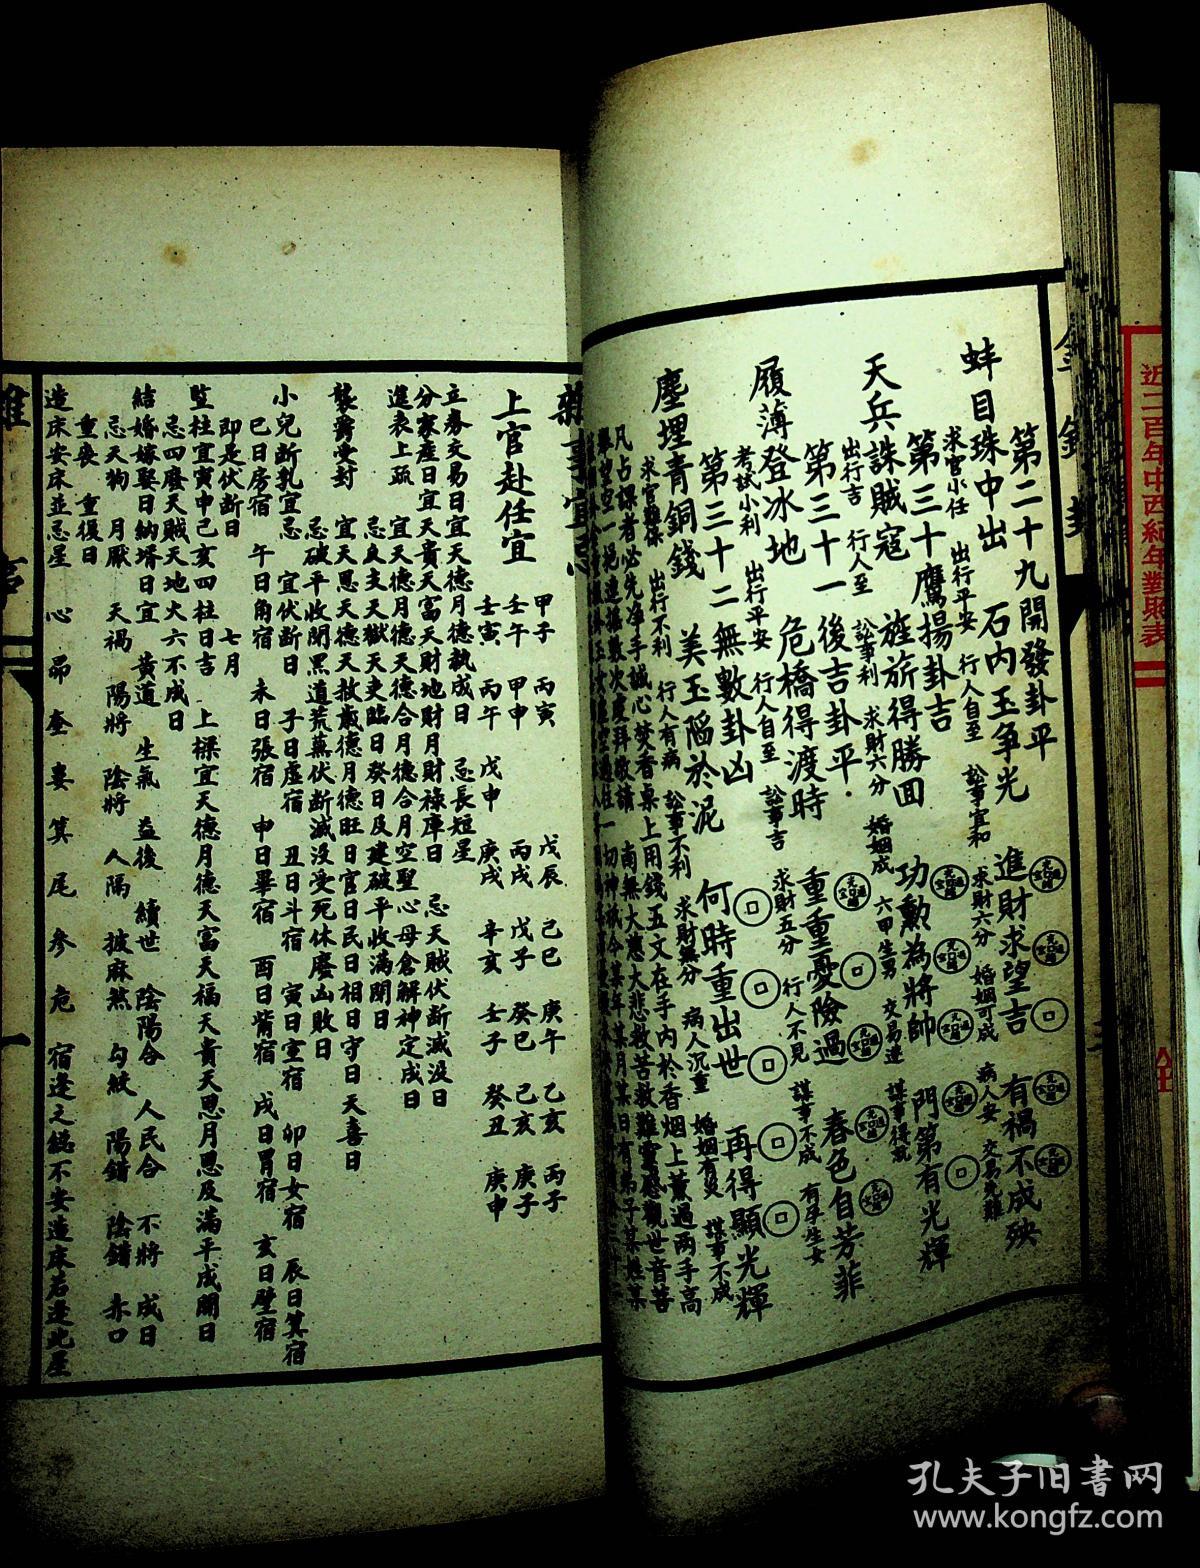 近二百年中西紀年對照表
金錢卦
第二十九開發卦平
蚌目珠中出 石內玉爭光 進財求望吉 有禍不成殃
求官小任 出行平安 行人自至 訟事宜和 求財六分 婚姻可成 病人安 交易見難
第三十鷹揚卦吉
天兵誅賊寇 旌旂得勝回 功勳為將帥 門第有光輝
出行吉 行人至 訟事利 求財六分 婚姻成 六甲生男 交易達 謀事提就
第三十一後吉卦平
履薄登冰地 危橋得渡時 重重憂險過 春色自芳菲
考試小利 出行平安 行人自至 訟事吉 求財五分 行人不見 謀事不成 有孕生女
第三十二無數卦凶
塵埋青銅錢 美玉陷於泥 何時重出世 再得顯光輝
求官難 出行不利 行人有病 訟事不利 求財無分 病人沉重 婚姻有 謀事不成
凡占課者必先淨手誠心焚香桌上用錢五文在手內於香烟上薰過兩手高
南無大慈大悲救苦救難靈感觀世音菩
雜事宜忌
上官赴任宜 甲子 丙寅 戊辰 己巳 庚午 乙亥 丙子
壬午 甲申 丙戌 戊子 癸巳 己亥 庚子
壬寅 丙午 戊申 庚戌 辛亥 壬子 癸丑 庚申
立券交易日宜天德月德執成日 忌長短星
分家產日宜天貴天富天財地財月財祿庫日 忌天賊伏斷滅沒日
進表上疏 宜天德月德天德合月德合月空聖心母倉解神定成日
忌良支天獄天吏臨日癸日及建破平收滿閉日
襲爵受封 宜天恩天德天赦歲德月德旺日官日民日相日守日天喜日
忌破平收閉黑道荒蕪伏斷滅沒受死休廢凶敗日
小兒斷乳宜忌 宜伏斷日 子日虛宿 丑日斗宿 寅日室宿 卯日女宿 辰日箕宿
巳日房宿 午日角宿 未日張宿 申日畢宿 酉日觜宿 戌日胃宿 亥日壁宿
即是伏斷日 七月
竪柱宜寅申己亥四柱日吉 上樑宜天德月德天富天福天貴天恩月恩及滿平成開日
忌四廢天賊天地大六不成日
結婚嫁娶日納壻日宜 黃道 生氣 益後 續世 陰陽合 人民合 不將 成日
忌天狗 月厭 天禍 陽將 陰將 人隔 披麻煞 勾絞 陽錯 陰錯 赤口
重喪 重復日
造床安床並忌星 心 昴 奎 婁 箕 尾 參 危 宿逢之鷁不安造床若逢此星
雜事 一
孔夫子旧书网
www.kongfz.com